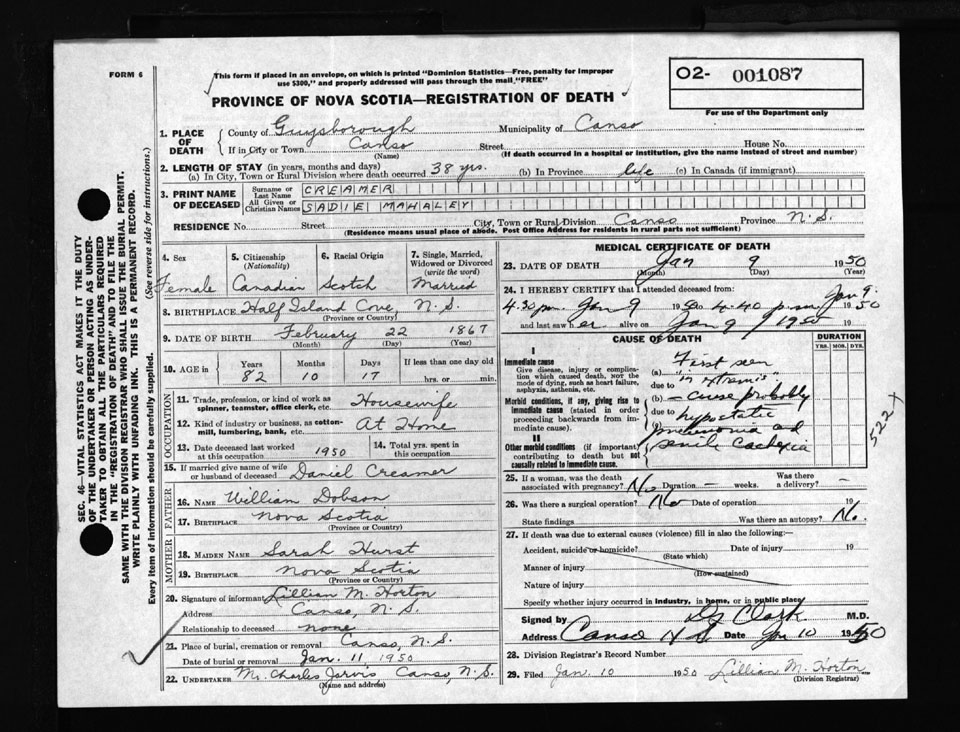 FORM 6
This form if placed in an envelope, on which is printed "Dominion Statistics—Free, penalty for improper
use $300," and properly addressed will pass through the mail, "FREE"
O2- 001087
For use of the Department only
PROVINCE OF NOVA SCOTIA—REGISTRATION OF DEATH
1. PLACE OF DEATH
County of Guysborough Municipality of Canso
If in City or Town Canso Street House No.
(Name) (If death occurred in a hospital or institution, give the name instead of street and number)
2. LENGTH OF STAY (in years, months and days)
(a) In City, Town or Rural Division where death occurred 38 yrs. (b) In Province life (c) In Canada (if immigrant)
3. PRINT NAME OF DECEASED
Surname or Last Name CREAMER
All Given or Christian Names SADIE MAHALEY
RESIDENCE No. Street City, Town or Rural Division Canso Province N.S.
(Residence means usual place of abode. Post Office Address for residents in rural parts not sufficient)
SEC. 46—VITAL STATISTICS ACT MAKES IT THE DUTY
OF THE UNDERTAKER OR PERSON ACTING AS UNDER-
TAKER TO OBTAIN ALL THE PARTICULARS REQUIRED
IN THE "REGISTRATION OF DEATH" AND TO FILE THE
SAME WITH THE DIVISION REGISTRAR WHO SHALL ISSUE THE BURIAL PERMIT.
WRITE PLAINLY WITH UNFADING INK. THIS IS A PERMANENT RECORD.
Every item of information should be carefully supplied. (See reverse side for instructions.)
4. Sex Female
5. Citizenship (Nationality) Canadian
6. Racial Origin Scotch
7. Single, Married, Widowed or Divorced (write the word) Married
8. BIRTHPLACE Half Island Cove N.S.
(Province or Country)
9. DATE OF BIRTH February 22 1867
(Month) (Day) (Year)
10. AGE in Years Months Days If less than one day old
82 10 17 hrs. or min.
OCCUPATION
11. Trade, profession, or kind of work as spinner, teamster, office clerk, etc. Housewife
12. Kind of industry or business, as cotton-mill, lumbering, bank, etc. At Home
13. Date deceased last worked at this occupation 1950
14. Total yrs. spent in this occupation
15. If married give name of wife or husband of deceased Daniel Creamer
FATHER
16. NAME William Dobson
17. BIRTHPLACE Nova Scotia
(Province or Country)
MOTHER
18. MAIDEN NAME Sarah Hurst
19. BIRTHPLACE Nova Scotia
(Province or Country)
20. Signature of informant Lillian M. Horton
Address Canso, N.S.
Relationship to deceased none
21. Place of burial, cremation or removal Canso, N.S.
Date of burial or removal Jan. 11, 1950
22. UNDERTAKER Mr. Charles Jarvis, Canso, N.S.
(Name and address)
MEDICAL CERTIFICATE OF DEATH
23. DATE OF DEATH Jan 9 1950
(Month) (Day) (Year)
24. I HEREBY CERTIFY that I attended deceased from:
4.30 p.m. Jan 9 1950 to 4.40 p.m. Jan 9. 1950
and last saw her alive on Jan 9 / 1950 19
CAUSE OF DEATH
DURATION
YRS. MOS. DYS.
I
Immediate cause
Give disease, injury or complication which caused death, NOT the mode of dying, such as heart failure, asphyxia, asthenia, etc.
(a) First seen
due to "in extremis"
Morbid conditions, if any, giving rise to immediate cause (stated in order proceeding backwards from immediate cause).
(b) — cause probably
due to hypostatic
pneumonia and
II
Other morbid conditions (if important) contributing to death but not causally related to immediate cause.
senile cachexia
522 x
25. If a woman, was the death associated with pregnancy? No Duration — weeks. Was there a delivery? —
26. Was there a surgical operation? No Date of operation 19
State findings Was there an autopsy? No.
27. If death was due to external causes (violence) fill in also the following:—
Accident, suicide or homicide? Date of injury 19
(State which)
Manner of injury
(How sustained)
Nature of injury
Specify whether injury occurred in industry, in home, or in public place
Signed by Clark M.D.
Address Canso N.S. Date Jan 10 1950
28. Division Registrar's Record Number
29. Filed Jan. 10 1950 Lillian M. Horton
(Division Registrar)